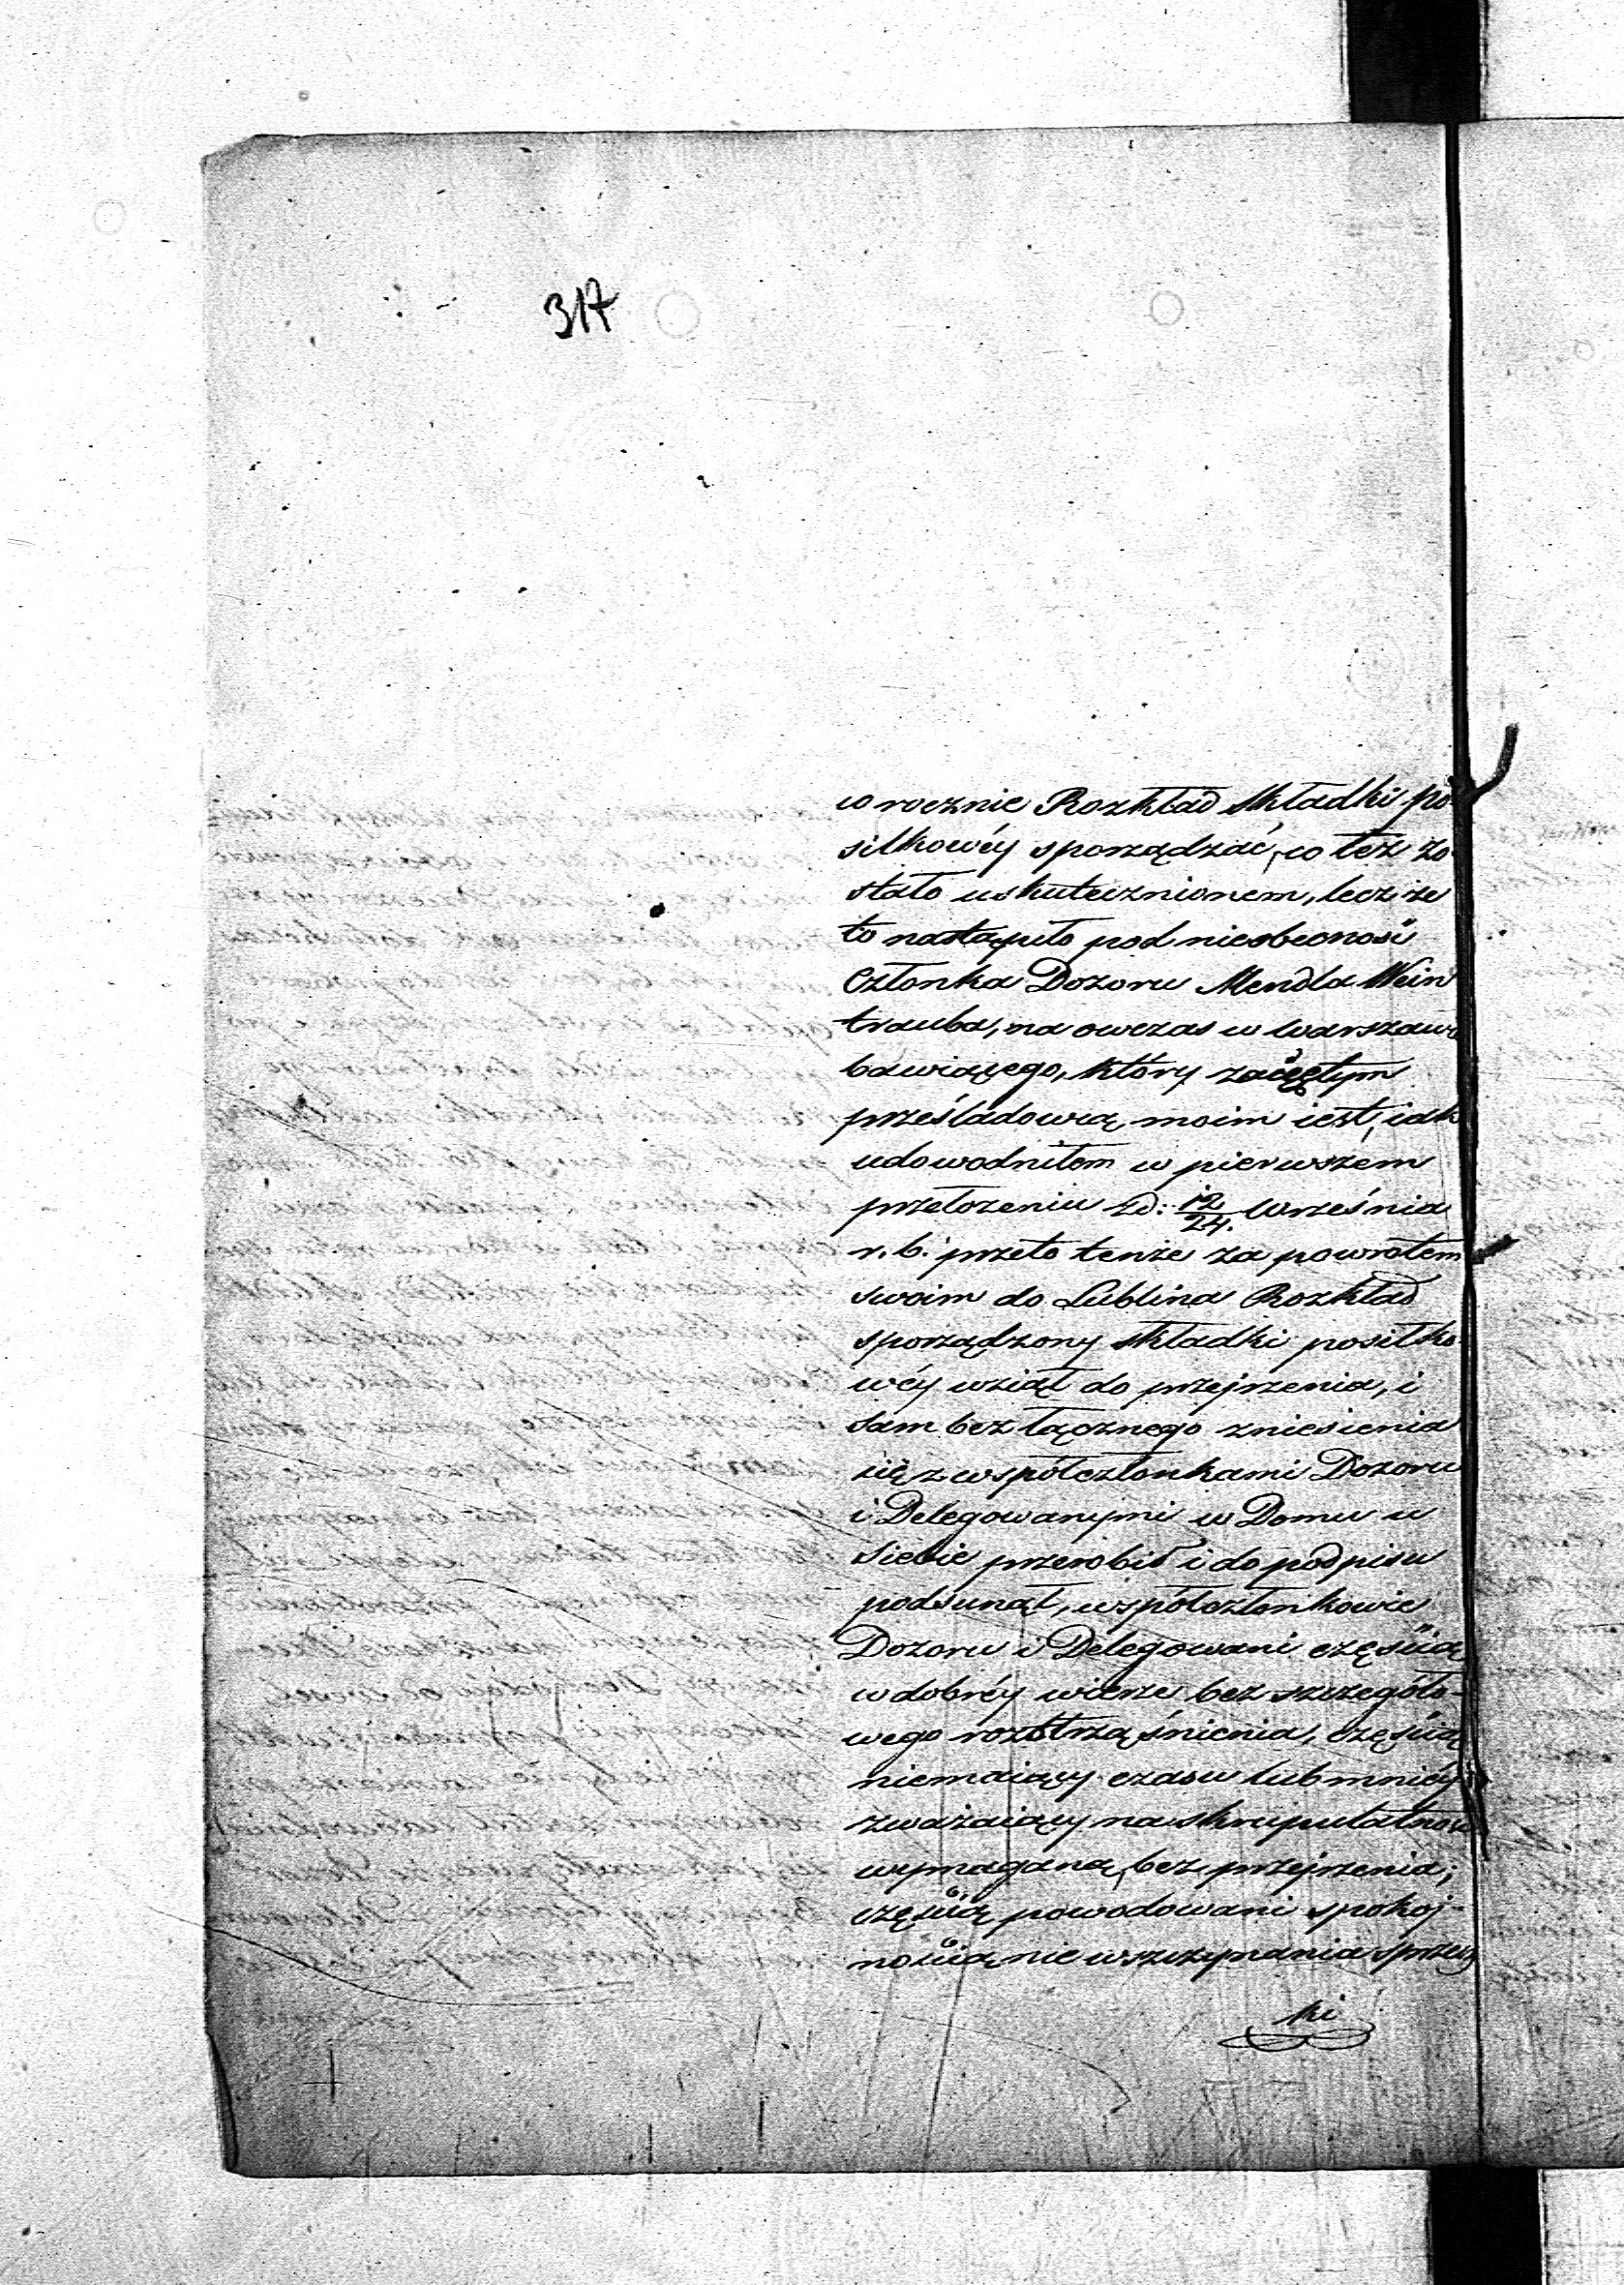 317
corocznie Rozkład składki po
siłkowéy sporządzać, co też zo
stało uskutecznionem, lecz że
to nastąpiło pod nieobecność
Członka Dozoru Mendla Wein
trauba, na owczas w Warszawie
bawiącego, który zaciętym
prześladowcą moim iest, iak
udowodniłem w pierwszem
przełożeniu D: 12/24. Września
r. b. przeto tenże za powrotem
swoim do Lublina Rozkład
sporządzony składki posiłko
wéy wziął do przejrzenia, i
sam bez łącznego zniesienia
się z współczłonkami Dozoru
i Delegowanymi w Domu u
siebie przerobił i do podpisu
podsunął, współczłonkowie
Dozoru i Delegowani częścią
w dobréy wierze bez szczegóło-
wego roztrząśnienia, częścią
niemaiący czasu lub mniéy
zważaiący na skrupulatność
wymaganą, bez przejrzenia;
częścią powodowani spokoj-
nością nie wszczynania sprzecz
ki